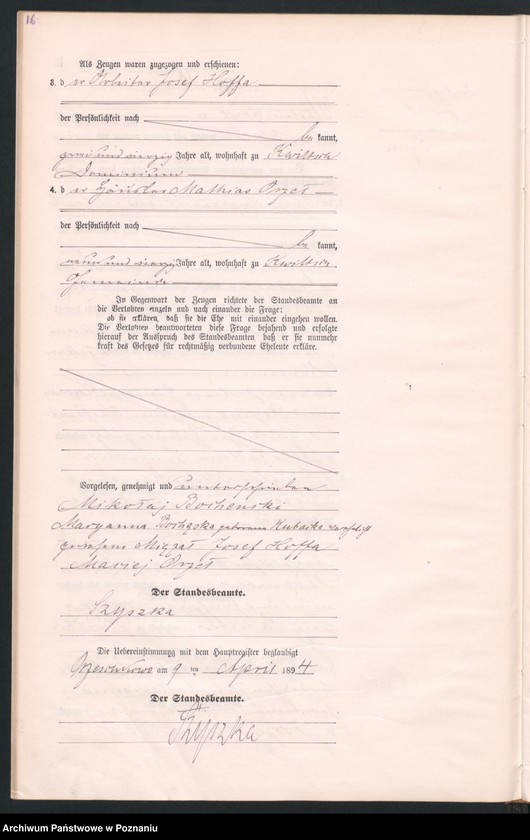 16
Als Zeugen waren zugezogen und erschienen:
3. der Arbeiter Josef Hoffa
der Persönlichkeit nach
be kannt,
zwei und vierzig Jahre alt, wohnhaft zu Kwiltsch
Dominium
4. der Häusler Mathias Orzeł
der Persönlichkeit nach
be kannt,
neun und vierzig Jahre alt, wohnhaft zu Kwiltsch
Gemeinde
In Gegenwart der Zeugen richtete der Standesbeamte an
die Verlobten einzeln und nach einander die Frage:
ob sie erklären, daß sie die Ehe mit einander eingehen wollen.
Die Verlobten beantworteten diese Frage bejahend und erfolgte
hierauf der Ausspruch des Standesbeamten, daß er sie nunmehr
kraft des Gesetzes für rechtmäßig verbundene Eheleute erkläre.
Vorgelesen, genehmigt und unterschrieben
Mikołaj Bochenski
Maryanna geborene
Josef Hoffa
Maciej Orzeł
Der Standesbeamte.
Szyszka
Die Uebereinstimmung mit dem Hauptregister beglaubigt
am 9 ten April 1894
Der Standesbeamte.
Szyszka
Archiwum Państwowe w Poznaniu